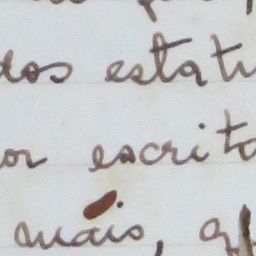 dos estatu
or escrito
mais,